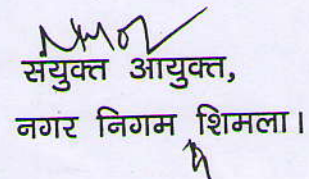 संयुक्त आयुक्त,
नगर निगम शिमला।